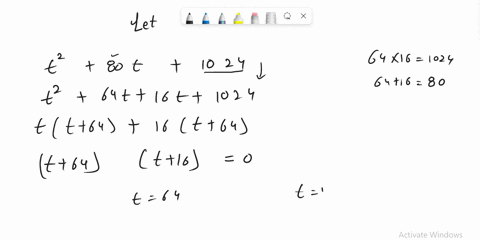 Let
t² + 80t + 1024
64 × 16 = 1024
t² + 64t + 16t + 1024
64 + 16 = 80
t(t+64) + 16(t+64)
(t+64) (t+16) = 0
t = 64 t =
Activate Windows